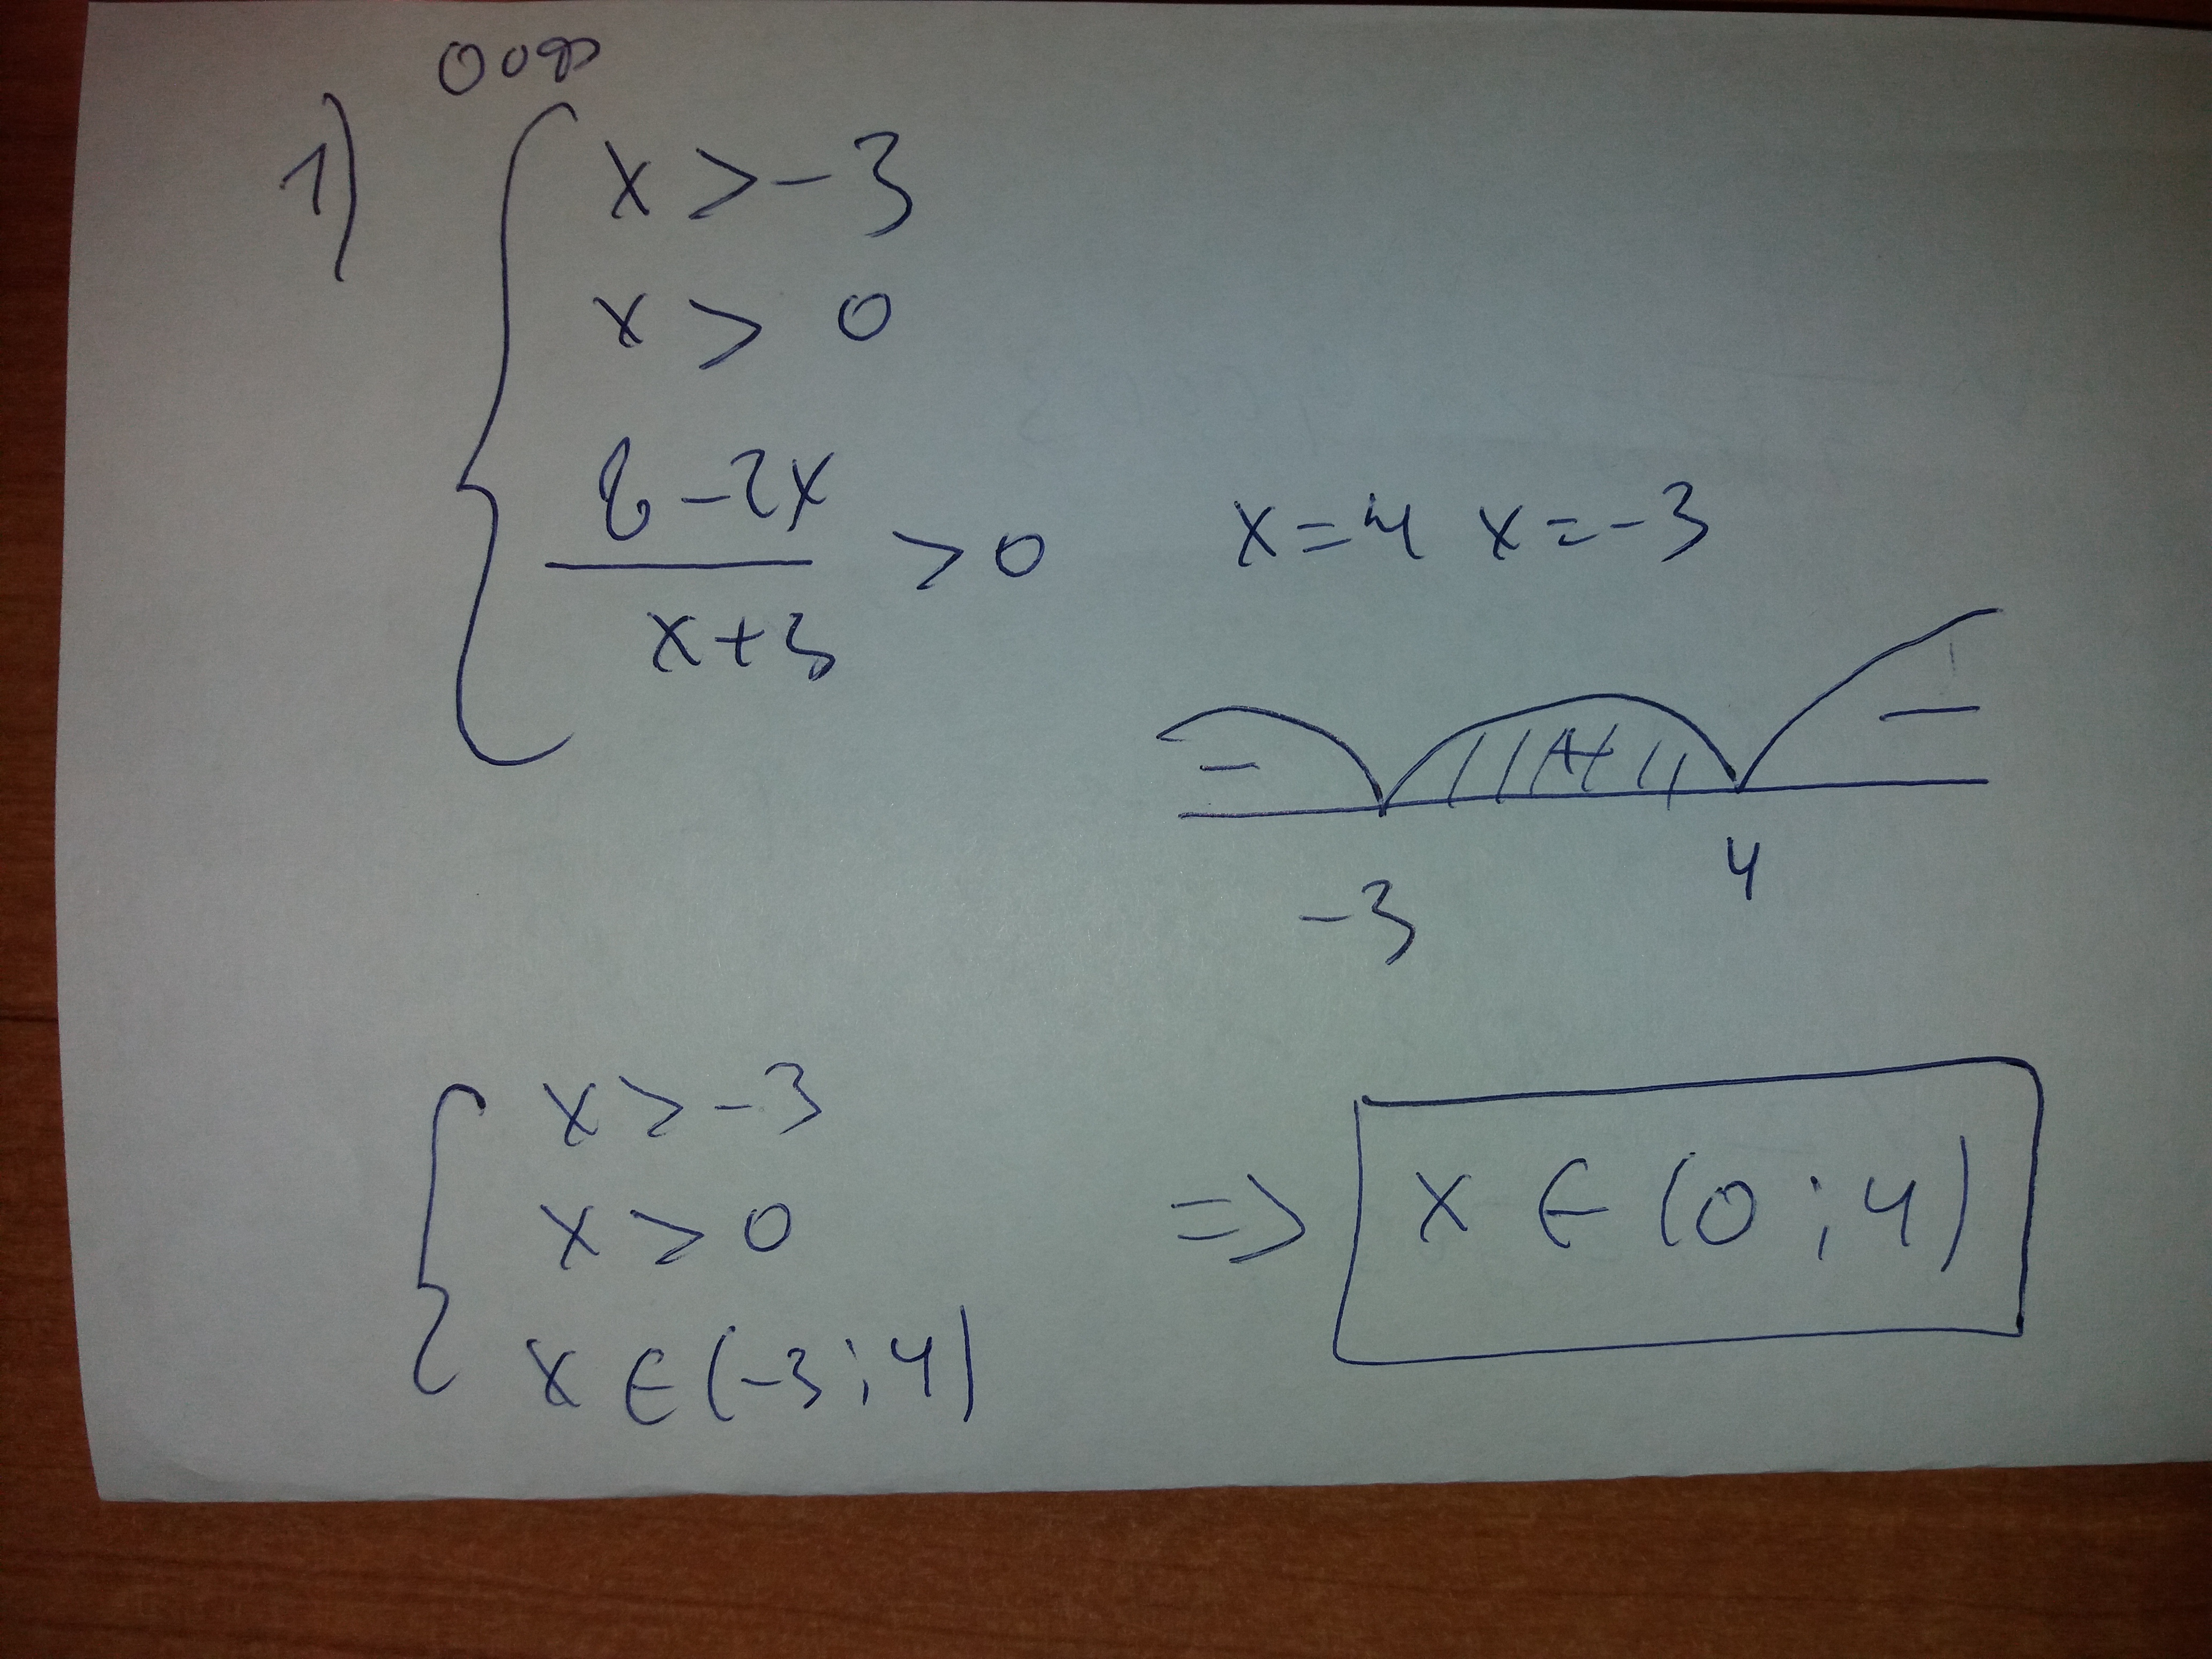 ООФ
1)
x > -3
x > 0
8-2x
/ x+3 > 0 x=4 x=-3
- + -
-3 4
x > -3
x > 0 => x ∈ (0;4)
x ∈ (-3;4)